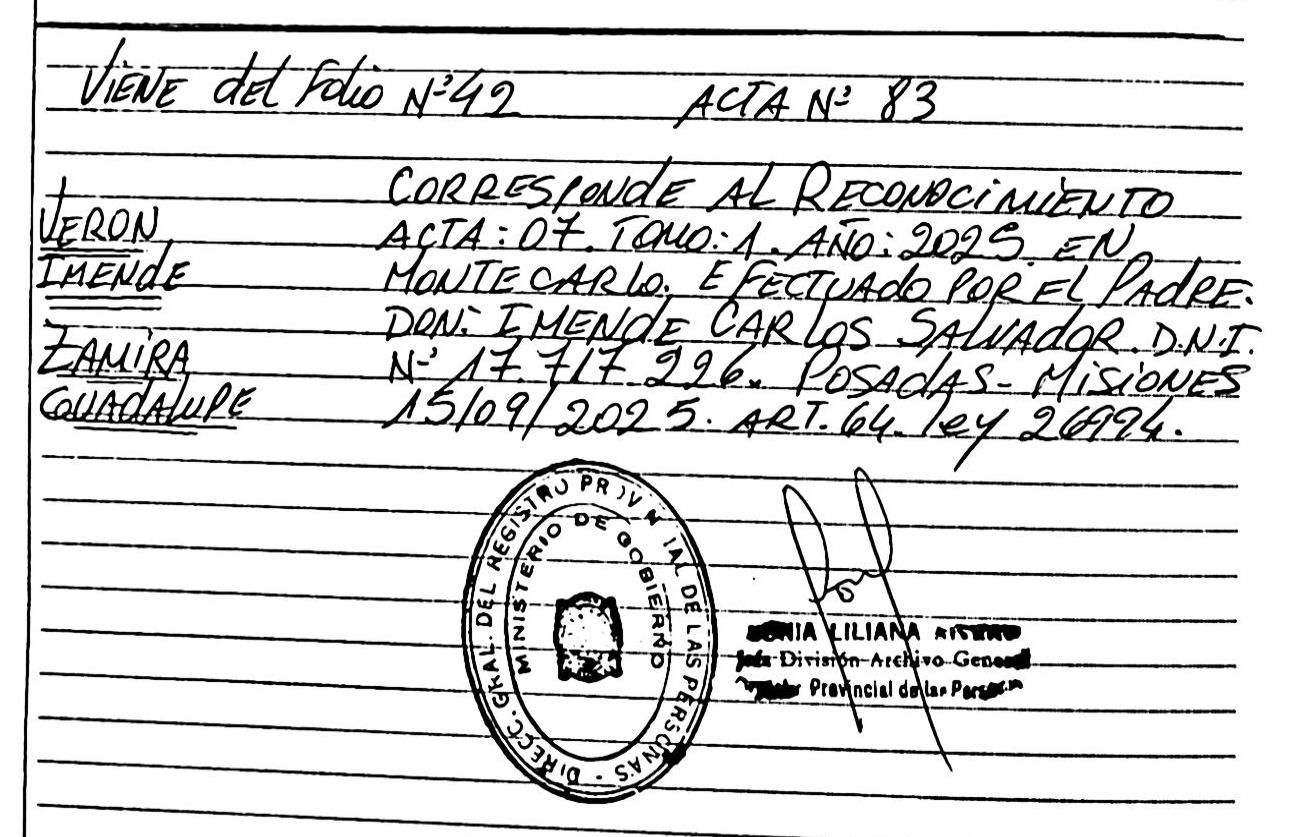 VIENE del Folio Nº 42 ACTA Nº 83
VERON
IMENDE
ZAMIRA
GUADALUPE
CORRESPONDE AL RECONOCIMIENTO
ACTA: 07. TOMO: 1. AÑO: 2025. EN
MONTECARLO. EFECTUADO POR EL PADRE.
DON: IMENDE CARLOS SALVADOR. D.N.I.
Nº 17.717.226. POSADAS - MISIONES
15/09/2025. ART. 64. ley 26994.
DIRECC. GRAL. DEL REGISTRO PROVINCIAL DE LAS PERSONAS -
MINISTERIO DE GOBIERNO
SONIA LILIANA
Jefa División Archivo General
Provincial de las Personas